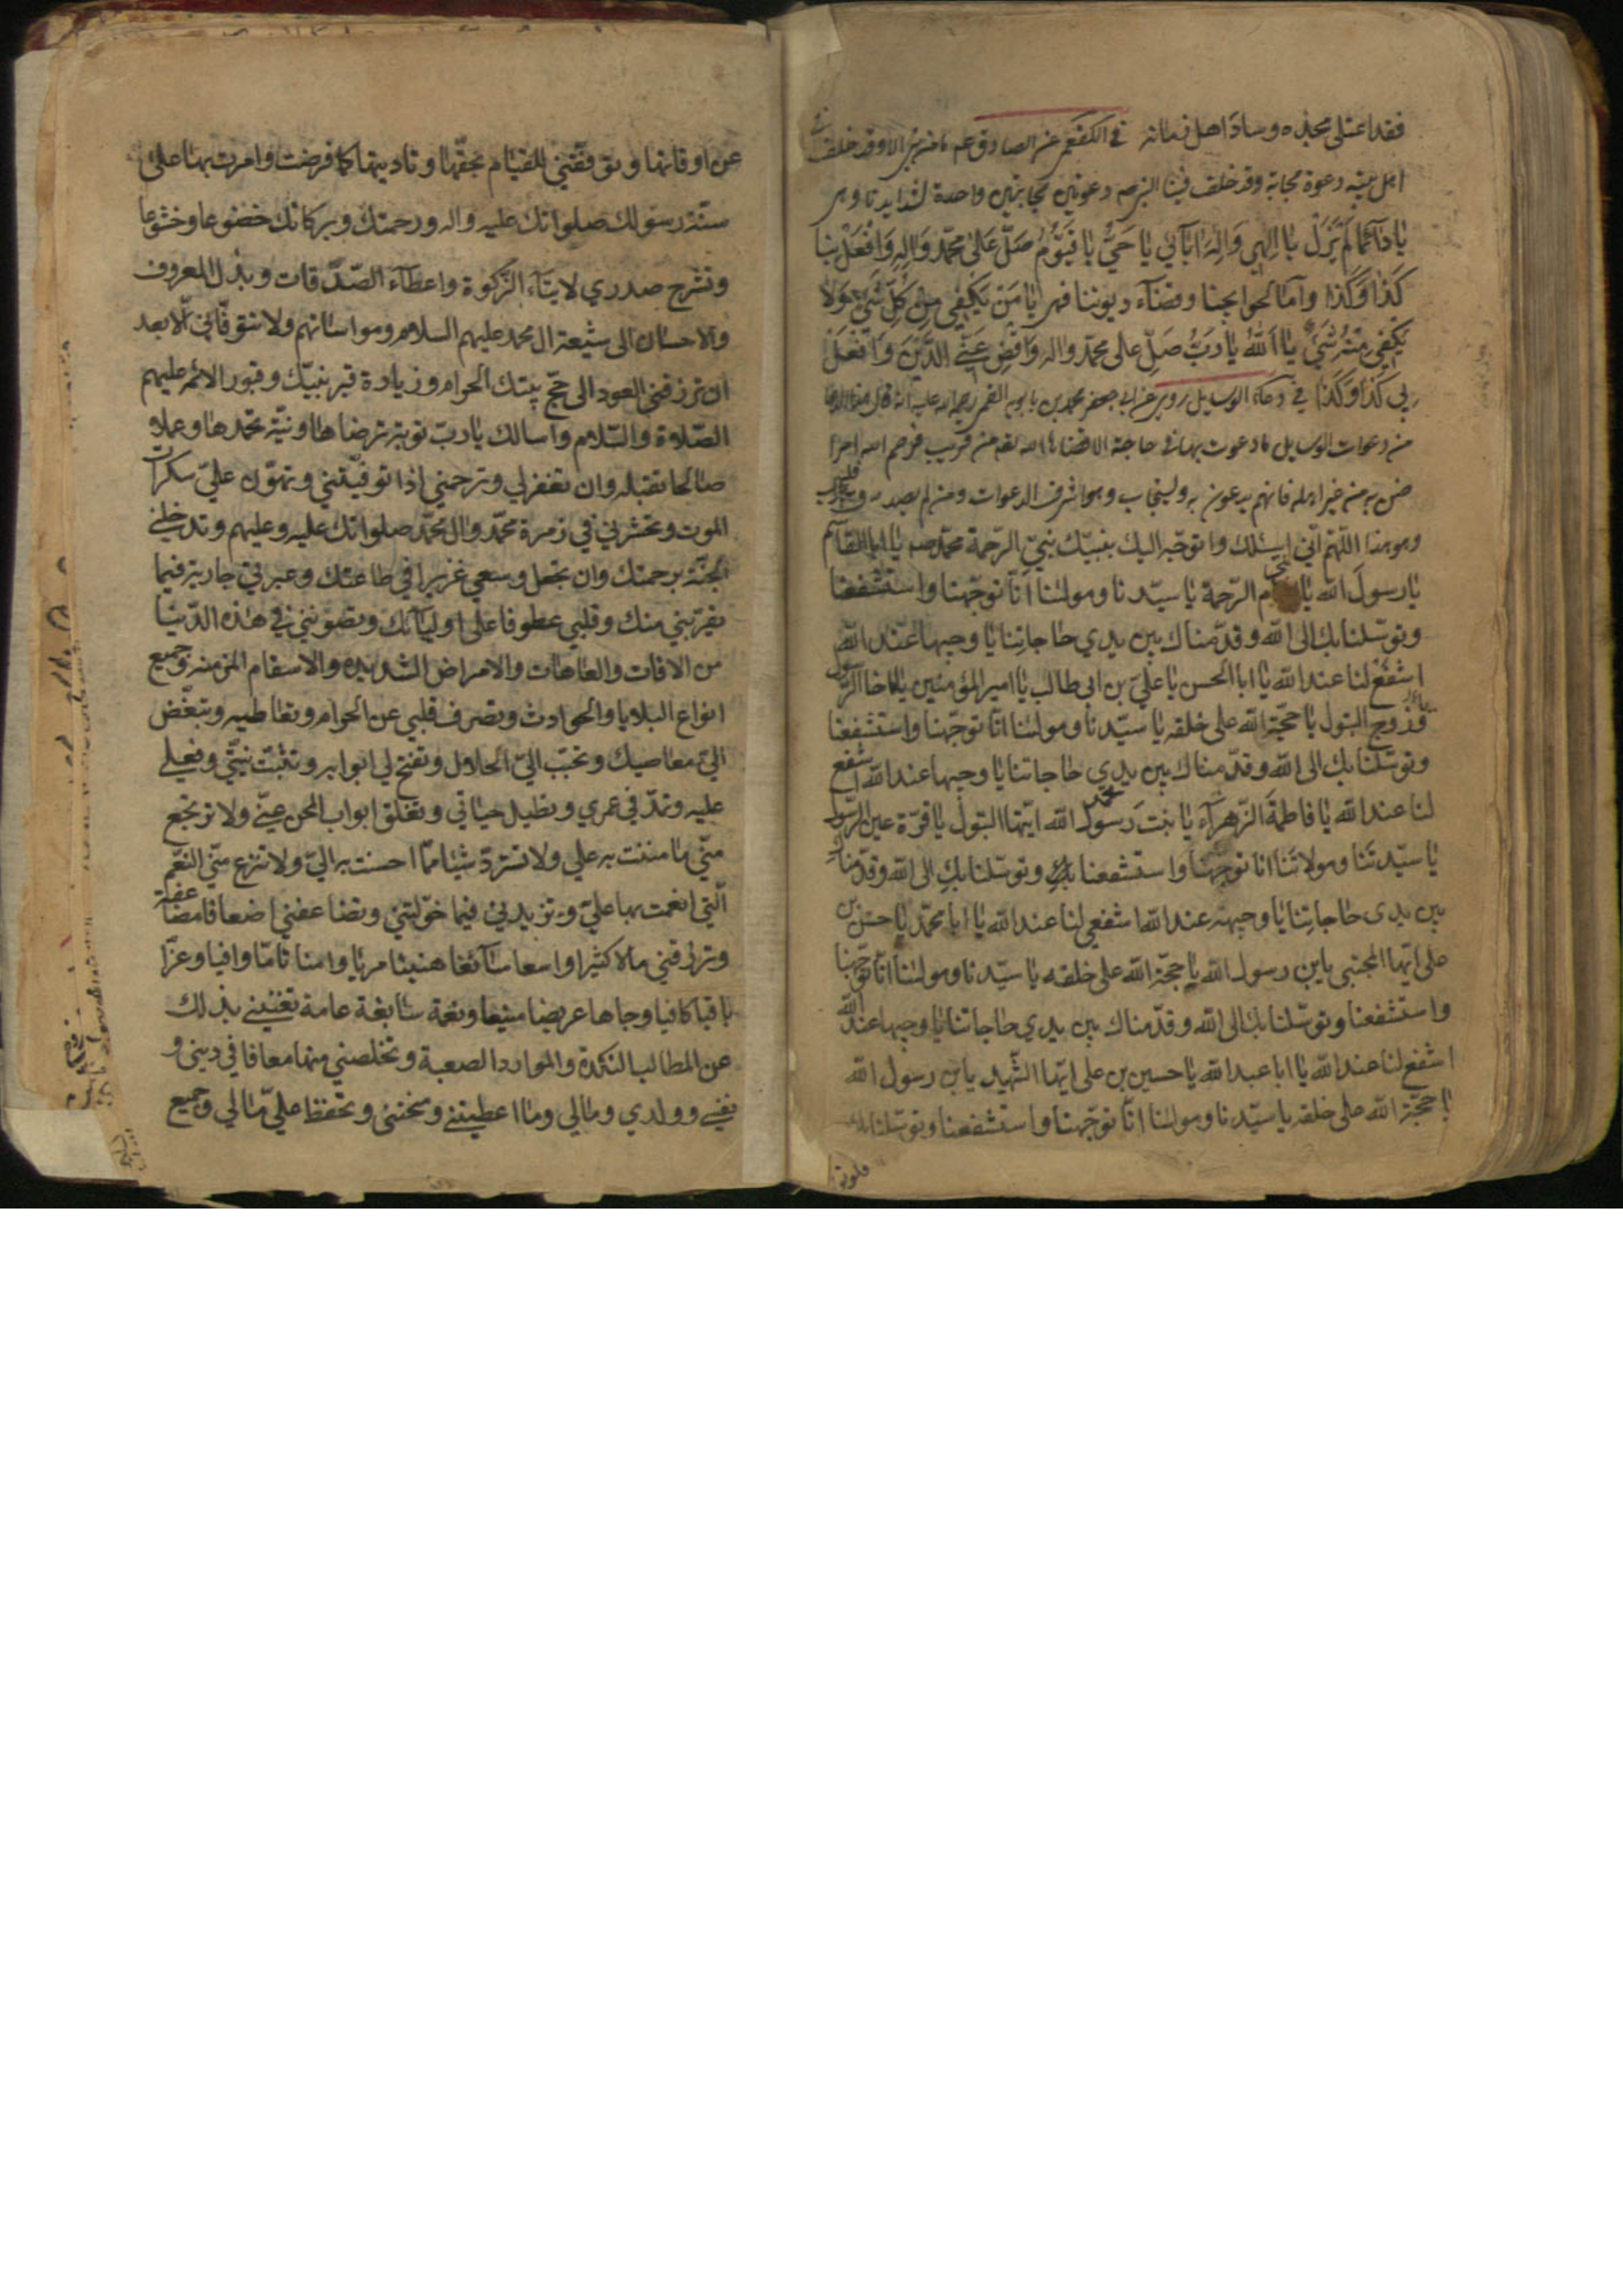 فقد اعتلى مجده وساد اهل زمانه في الكفعمي عن الصادق عم ما من نبي الا وقد خلف في
اهل بيته دعوة مجابة وقد خلف فينا النبي صم دعوتين مجابتين واحدة لشدايدنا وهي
يا دَآئمًا لَمْ يَزَلْ يا اِلهي وَاِلهَ اٰبآئي يا حَيُّ يا قَيّومُ صَلِّ عَلىٰ محمّدٍ وَالِهِ وَافْعَلْ بنا
كَذا وَكَذا وامّا لحوايجنا وقضآء ديوننا فهي يا مَنْ يَكفي مِن كلِّ شَيءٍ وَلا
يَكفي مِنْهُ شَيءٌ يا اَللهُ يا رَبُّ صَلِّ على محمّد واله وَاقضِ عَنّي الدَّيْنَ وَافْعَلْ
بي كَذا وَكَذا في دعآء الوسايل روي عن ابي جعفر محمد بن بابويه القمي رحمه الله عليه انه قال هذا الدعا
من دعوات الوسايل ما دعوت بها في حاجة الا قضاها الله لقد من قريب فرحم الله امرا
ضن به من غير اهله فانهم يدعون به وليستجاب وهو اشرف الدعوات ومن لم يصدق
وهو هذا اللّهمّ انّي اسئلك واتوجّه اليك بنبيّك نبيّ الرّحمة محمّد صم يا ابا القاسم
يا رسولَ الله يا الرّحمة يا سيّدنا ومولٰنا انّا توجّهنا واستشفعنا
وتوسّلنا بك الى الله وقدّمناك بين يدي حاجاتنا يا وجيها عند الله
اشفع لنا عند الله يا ابا الحسن يا عليّ بن ابي طالب يا امير المؤمنين يا اخا الرّسول
وزوج البتول يا حجّة الله على خلقه يا سيّدنا ومولٰنا انّا توجّهنا واستشفعنا
وتوسّلنا بك الى الله وقدّمناك بين يدي حاجاتنا يا وجيها عند الله اشفع
لنا عند الله يا فاطمة الزّهرآء يا بنت رسول الله محمّد ايّتها البتول يا قرّة عين الرّسول
يا سيّدتنا ومولاتنا انا توجهنا واستشفعنا بك وتوسّلنا بك الى الله وقدّمناك
بين يدى حاجاتنا يا وجيهة عند الله اشفعي لنا عند الله يا ابا محمّد يا حسن بن
على ايّها المجتبى يابن رسول الله يا حجّة الله على خلقه يا سيّدنا ومولٰنا انّا توجّهنا
واستشفعنا وتوسّلنا بك الى الله وقدّمناك بين يدي حاجاتنا يا وجيها عند الله
اشفع لنا عند الله يا ابا عبد الله يا حسين بن على ايّها الشّهيد يابن رسول الله
يا حجّة الله على خلقه يا سيّدنا ومولٰنا انّا توجّهنا واستشفعنا وتوسّلنا بك
عن اوقاتها وتوفّقني للقيام بحقّها وتاديتها كما فرضت وامرت بها على
سنّة رسولك صلواتك عليه واله ورحمتك وبركاتك خضوعا وخشوعا
وتشرح صدري لايتآء الزّكوة واعطآء الصّدقات وبذل المعروف
والاحسان الى شيعة ال محمد عليهم السلام ومواساتهم ولا تتوفّاني الّا بعد
ان ترزقني العود الى حجّ بيتك الحرام وزيارة قبر نبيّك وقبور الائمه عليهم
الصّلاة والسّلام واسالك يا ربّ توبة ترضاها ونيّة تحمدها وعملا
صالحا تقبله وان تغفر لي وترحمني اذا توفّيتني وتهوّن عليّ سكرات
الموت وتحشرني في زمرة محمّد وال محمّد صلواتك عليه وعليهم وتدخلني
الجنّة برحمتك وان تجعل وسعي غزيرا في طاعتك وعبرتي جارية فيما
يقرّبني منك وقلبي عطوفا على اوليآئك وتصونني في هذه الدّنيا
من الافات والعاهات والامراض الشديده والاسقام المزمنه وجميع
انواع البلايا والحوادث وتصرف قلبي عن الحرام وتعاطيه وتبغّض
اليّ معاصيك وتحبّب اليّ الحلال وتفتح لي ابوابه وتثبّت نيّتي وفعلي
عليه وتمدّ في عمري وتطيل حياتي وتغلق ابواب المحن عنّي ولا ترتجع
منّي ما مننت به علي ولا تستردّ شيئا ممّا احسنت به اليّ ولا تنزع منّي النّعم
الّتي انعمت بها عليّ وتزيدني فيما خوّلتني وتضاعفني اضعافا مضاعفة
وترزقني مالا كثيرا واسعا سآئغا هنيئا مريا وامنا تامّا وافيا وعزّا
باقيا كافيا وجاها عريضا منيعا ونعمة سابغة عامة تغنيني بذلك
عن المطالب النكدة والموارد الصعبة وتخلصني منها معافا في ديني و
نفسي وولدي ومالي وما اعطيتني ومنحتني وتحفظ عليّ مالي وجميع